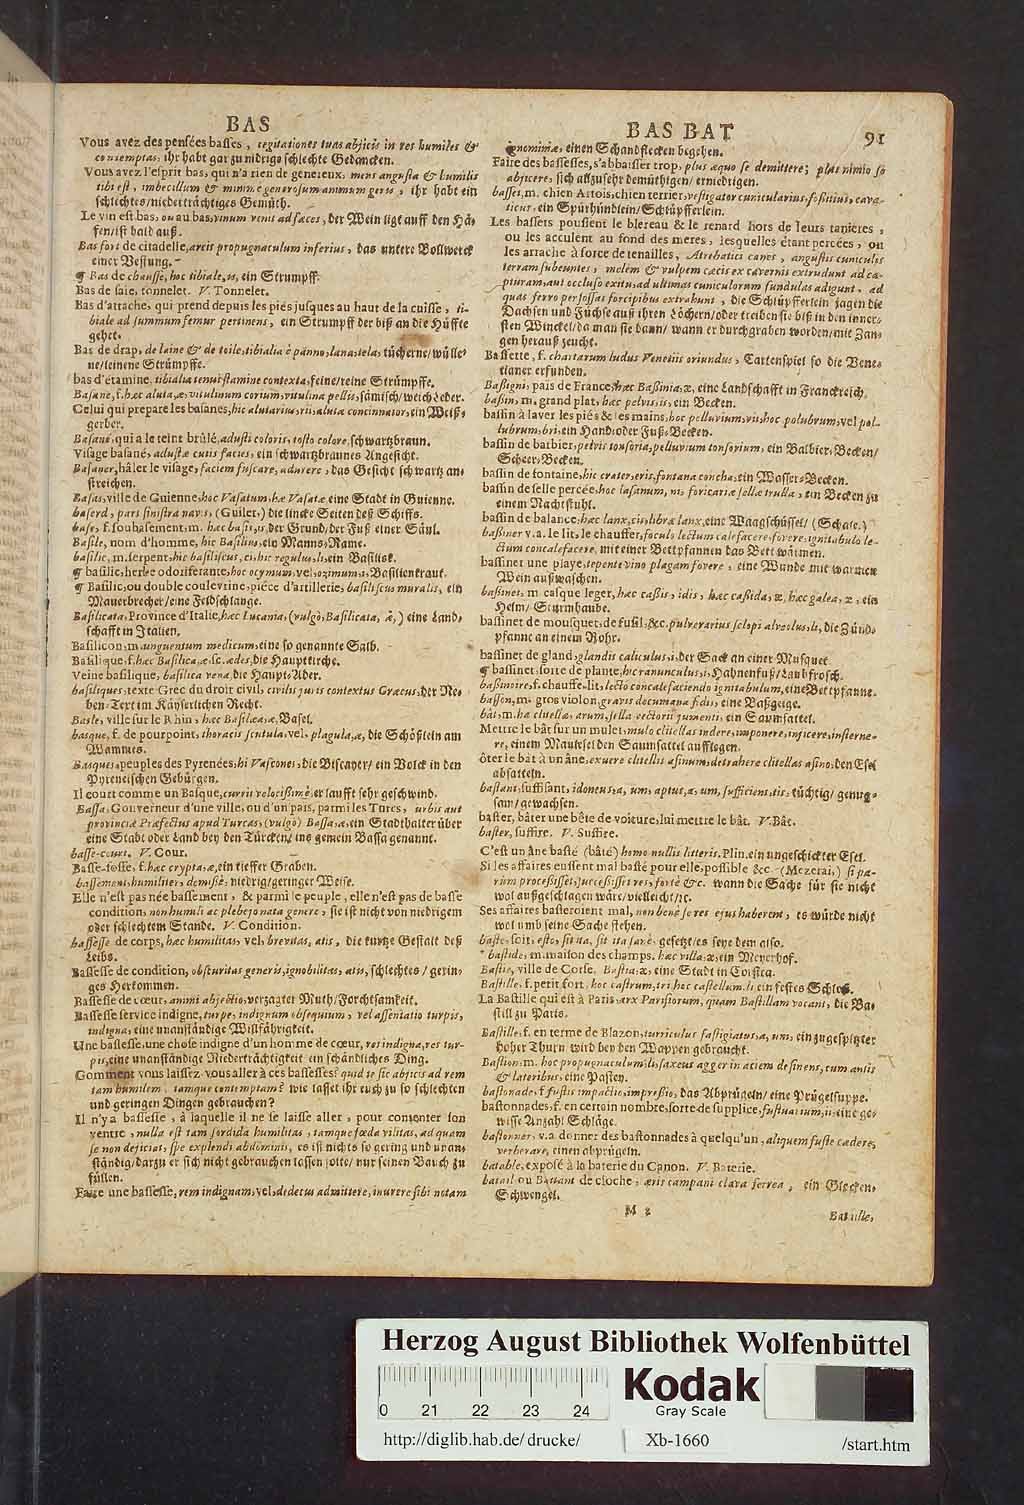 BAS
Vous avez des pensées basses, cogitationes tuas abjicis in res humiles &
contemptas, ihr habt gar zu nidrige schlechte Gedancken.
Vous avez l'esprit bas, qui n'a rien de genereux, mens angusta & humilis
tibi est, imbecillum & minime generosum animum geris, ihr habt ein
schlechtes/niederträchtiges Gemüth.
Le vin est bas, ou au bas, vinum venit ad fæces, der Wein ligt auff den Hä-
fen/ist bald auß.
Bas fort de citadelle, arcis propugnaculum inferius, das untere Bollwerck
einer Vestung.
¶ Bas de chausse, hoc tibiale, is, ein Strumpff.
Bas de saie, tonnelet. V. Tonnelet.
Bas d'attache, qui prend depuis les piés jusques au haut de la cuisse, ti-
biale ad summum femur pertinens, ein Strumpff der biß an die Hüffte
gehet.
Bas de drap, de laine & de toile, tibialia è panno, lana, tela, tücherne/wülle-
ne/leinene Strümpffe.
bas d'étamine, tibialia tenui stamine contexta, feine/reine Strümpffe.
Basane, f. hæc aluta, æ, vitulinum corium, vitulina pellis, sämisch/weich Leder.
Celui qui prepare les basanes, hic alutarius, rii, alutæ concinnator, ein Weiß-
gerber.
Basané, qui a le teint brûlé, adusti coloris, tosto colore, schwartzbraun.
Visage basané, adustæ cutis facies, ein schwartzbraunes Angesicht.
Basaner, hâler le visage, faciem fuscare, adurere, das Gesicht schwartz an-
streichen.
Basas, ville de Guienne, hoc Vasatum, hæ Vasatæ eine Stadt in Guienne.
baserd, pars sinistra navis, (Guilet,) die lincke Seiten deß Schiffs.
base, f. soubasement, m. hæc basis, is, der Grund/der Fuß einer Säul.
Basile, nom d'homme, hic Basilius, ein Manns-Name.
basilic, m. serpent, hic basiliscus, ci, hic regulus, li, ein Basilisk.
¶ basilic, herbe odoriferante, hoc ocymum, vel, ozimum, i, Basilienkraut.
¶ Basilic, ou double coulevrine, piéce d'artillerie, basiliscus muralis, ein
Mauerbrecher/eine Feldschlange.
Basilicata, Province d'Italie, hæc Lucania, (vulgò, Basilicata, æ,) eine Land-
schafft in Italien.
Basilicon, m. unguentum medicum, eine so genannte Salb.
Basilique, f. hæc Basilica, æ, sc. ædes, die Hauptkirche.
Veine basilique, basilica vena, die Haupt-Ader.
basiliques, texte Grec du droit civil, civilis juris contextus Græcus, der Ne-
ben-Text im Käyserlichen Recht.
Basle, ville sur le Rhin, hæc Basilæa, æ, Basel.
basque, f. de pourpoint, thoracis scutula, vel, plagula, æ, die Schößlein am
Wammes.
Basques, peuples des Pyrenées, hi Vascones, die Biscayer/ ein Volck in den
Pyreneischen Gebürgen.
Il court comme un Basque, currit velocissimè, er laufft sehr geschwind.
Bassa, Gouverneur d'une ville, ou d'un païs, parmi les Turcs, urbis aut
provinciæ Præfectus apud Turcas, (vulgò) Bassa, æ, ein Stadthalter über
eine Stadt oder Land bey den Türcken/ ins gemein Bassa genannt.
basse-court. V. Cour.
Basse-fosse, f. hæc crypta, æ, ein tieffer Graben.
bassement, humiliter, demissè, niedrig/geringer Weise.
Elle n'est pas née bassement, & parmi le peuple, elle n'est pas de basse
condition, non humili ac plebejo nata genere, sie ist nicht von niedrigem
oder schlechtem Stande. V. Condition.
bassesse de corps, hæc humilitas, vel, brevitas, atis, die kurtze Gestalt deß
Leibs.
Bassesse de condition, obscuritas generis, ignobilitas, atis, schlechtes / gerin-
ges Herkommen.
Bassesse de cœur, animi abjectio, verzagter Muth/Forchtsamkeit.
Bassesse service indigne, turpe, indignum obsequium, vel assentatio turpis,
indigna, eine unanständige Willfährigkeit.
Une bassesse, une chose indigne d'un homme de cœur, res indigna, res tur-
pis, eine unanständige Niederträchtigkeit ein schändliches Ding.
Comment vous laissez vous aller à ces bassesses? quid te sic abjicis ad rem
tam humilem, tamque contemptam? wie lasset ihr euch zu so schlechten
und geringen Dingen gebrauchen?
Il n'y a bassesse, à laquelle il ne se laisse aller, pour contenter son
ventre, nulla est tam sordida humilitas, tamque fœda vilitas, ad quam
se non dejiciat, spe explendi abdominis, es ist nichts so gering und unan-
ständig/darzu er sich nicht gebrauchen lassen solte/ nur seinen Bauch zu
füllen.
Faire une bassesse, rem indignam, vel, dedecus admittere, inurere sibi notam
BAS BAT
91
ignominiæ, einen Schandflecken begehen.
Faire des bassesses, s'abbaisser trop, plus æquo se demittere; plus nimio se
abjicere, sich allzusehr demüthigen/ erniedrigen.
basset, m. chien Artois, chien terrier, vestigator cunicularius, fossitius, cava-
ticus, ein Spürhündlein/Schlüpfferlein.
Les bassets poussent le blereau & le renard hors de leurs tanieres,
ou les acculent au fond des meres, lesquelles étant percées, on
les arrache à force de tenailles, Atrebatici canes, angustis cuniculis
terram subeuntes, melem & vulpem cæcis ex cavernis extrudunt ad ca-
pturam, aut occluso exitu, ad ultimas cuniculorum fundulas adigunt, ad
quas ferro perfossas forcipibus extrahunt, die Schlüpfferlein jagen die
Dachsen und Füchse auß ihren Löchern/oder treiben sie biß in den inner-
sten Winckel/da man sie dann/ wann er durchgraben worden/mit Zan-
gen herauß zeucht.
Bassette, f. chartarum ludus Venetiis oriundus, Cartenspiel so die Vene-
tianer erfunden.
Bassigni, païs de France, hæc Bassinia, æ, eine Landschafft in Franckreich.
bassin, m. grand plat, hæc pelvis, is, ein Becken.
bassin à laver les piés & les mains, hoc pelluvium, vii, hoc polubrum, vel pol-
lubrum, bri, ein Hand-oder Fuß-Becken.
bassin de barbier, pelvis tonsoria, pelluvium tonsorium, ein Balbier-Becken/
Scheer-Becken.
bassin de fontaine, hic crater, eris, fontana concha, ein Wasser-Becken.
bassin de selle percée, hoc lasanum, ni, foricariæ sellæ trulla, ein Becken zu
einem Nachtstuhl.
bassin de balance, hæc lanx, cis, libræ lanx, eine Waagschüssel/ (Schale.)
bassiner v.a. le lit, le chauffer, foculo lectum calefacere, fovere, ignitabulo le-
ctum concalefacere, mit einer Bettpfannen das Bett wärmen.
bassiner une playe, tepente vino plagam fovere, eine Wunde mit warmen
Wein außwaschen.
bassinet, m. casque leger, hæc cassis, idis, hæc cassida, æ, hæc galea, æ, ein
Helm/ Sturmhaube.
bassinet de mousquet, de fusil, &c. pulverarius sclopi alveolus, li, die Zünd-
pfanne an einem Rohr.
bassinet de gland, glandis caliculus, i, der Sack an einer Musquet
¶ bassinet, sorte de plante, hic ranunculus, i, Hahnenfuß/Laubfrosch.
bassinoire, f. chauffe-lit, lecto concalefaciendo ignitabulum, eine Bettpfanne.
basson, m. gros violon, gravis decumana fidis, eine Baßgeige.
bât, m. hæ clitellæ, arum, sella vectorii jumenti, ein Saumsattel.
Mettre le bât sur un mulet, mulo clitellas indere, imponere, injicere, insterne-
re, einem Mautesel den Saumsattel aufflegen.
ôter le bât à un âne, exuere clitellis asinum, detrahere clitellas asino, den Esel
absatteln.
bastant, suffisant, idoneus, a, um, aptus, a, um, sufficiens, tis, tüchtig/ genug-
sam/gewachsen.
baster, bâter une bête de voiture, lui mettre le bât. V. Bât.
baster, suffire. V. Suffire.
C'est un âne basté (bâté) homo nullis litteris, Plin. ein ungeschickter Esel.
Si les affaires eussent mal basté pour elle, possible &c. (Mezerai,) si pa-
rùm processisset, successisset res, fortè &c. wann die Sache für sie nicht
wol außgeschlagen wäre/vielleicht/rc.
Ses affaires basteroient mal, non benè se res ejus haberent, es würde nicht
wol umb seine Sache stehen.
baste, soit, esto, sit ita, sit ita sanè, gesetzt/es seye dem also.
bastide, m. maison des champs, hæc villa, æ, ein Meyerhof.
Bastie, ville de Corse, Bastia, æ, eine Stadt in Corsica.
Bastille, f. petit fort, hoc castrum, tri, hoc castellum, li ein festes Schloß.
La Bastille qui est à Paris, arx Parisiorum, quam Bastillam vocant, die Ba-
still zu Paris.
Bastille, f. en terme de Blazon, turriculus fastigiatus, a, um, ein zugespitzter
hoher Thurn wird bey den Wappen gebraucht.
Bastion, m. hoc propugnaculum, li, saxeus agger in aciem desinens, tum antis
& lateribus, eine Pasten.
bastonade, f. fustis impactio, impressio, das Abprügeln/eine Prügelsuppe.
bastonnades, f. en certain nombre, sorte de supplice, fustuarium, ii, eine ge-
wisse Anzahl Schläge.
bastonner, v.a. donner des bastonnades à quelqu'un, aliquem fuste cædere,
verberare, einen abprügeln.
batable, exposé à la baterie du Canon. V. Baterie.
batail ou Battant de cloche, æris campani clava ferrea, ein Glocken-
Schwengel.
M 2
Bataille,
Herzog August Bibliothek Wolfenbüttel
0 21 22 23 24
Kodak
Gray Scale
http://diglib.hab.de/drucke/
Xb-1660
/start.htm